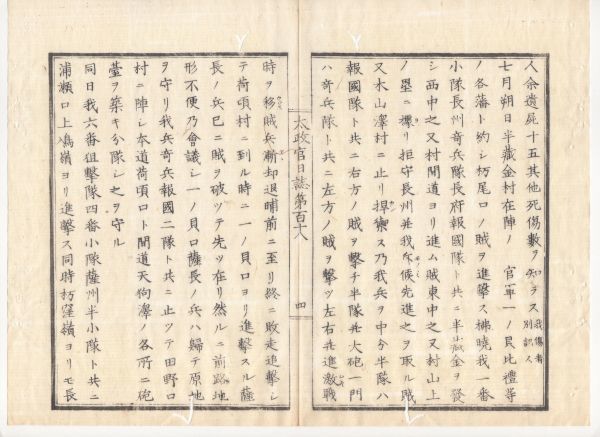 人余遺屍十五其他死傷數ヲ知ラス我傷者別訳ス
七月朔日半藏金村在陣ノ　官軍一ノ貝比禮等
ノ各藩ト約シ栃尾口ノ賊ヲ進擊ス拂曉我一番
小隊長州奇兵隊長府報國隊ト共ニ半藏金ヲ發
シ西中之又村間道ヨリ進ム賊東中之又村山上
ノ壘ニ據リ拒守長州并我斥候先進之ヲ取ル賊
又木山澤村ニ止リ捍禦ス乃我兵ヲ中分半隊ハ
報國隊ト共ニ右方ノ賊ヲ擊チ半隊并大砲一門
ハ奇兵隊ト共ニ左方ノ賊ヲ擊ツ左右并進激戰
太政官日誌第百十八
四
時ヲ移賊兵漸却退晡前ニ至リ終ニ敗走追擊シ
テ荷頃村ニ到ル時ニ一ノ貝口ヨリ進擊スル薩
長ノ兵已ニ賊ヲ破ツテ先ツ在リ然ルニ前路地
形不便乃會議シ一ノ貝口薩長ノ兵ハ歸テ原地
ヲ守リ我兵奇兵報國二隊ト共ニ止ツテ田野口
村ニ陣シ本道荷頃口ト間道天狗澤ノ各所ニ砲
臺ヲ築キ分隊シ之ヲ守ル
同日我六番狙擊隊四番小隊薩州半小隊ト共ニ
浦瀬口上鳩嶺ヨリ進擊ス同時枋窪嶺ヨリモ長